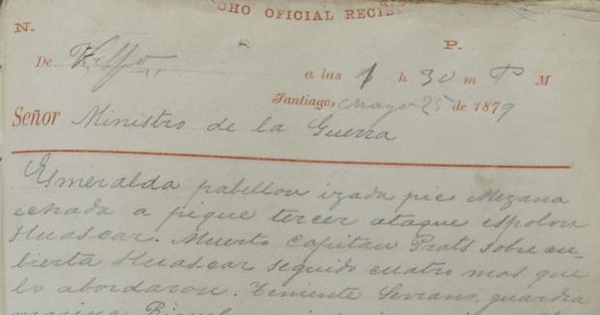 CHO OFICIAL RECIB
N. P.
De Valpo
a las 1 h 30 m P M
Santiago, Mayo 25 de 1879
Señor Ministro de la Guerra
Esmeralda pabellon izada pico Mezana
echada a pique tercer ataque espolon
Huascar. Muerto Capitan Prats sobre cu-
bierta Huascar seguido cuatro mas que
lo abordaron. Teniente Serrano, guardia
marina